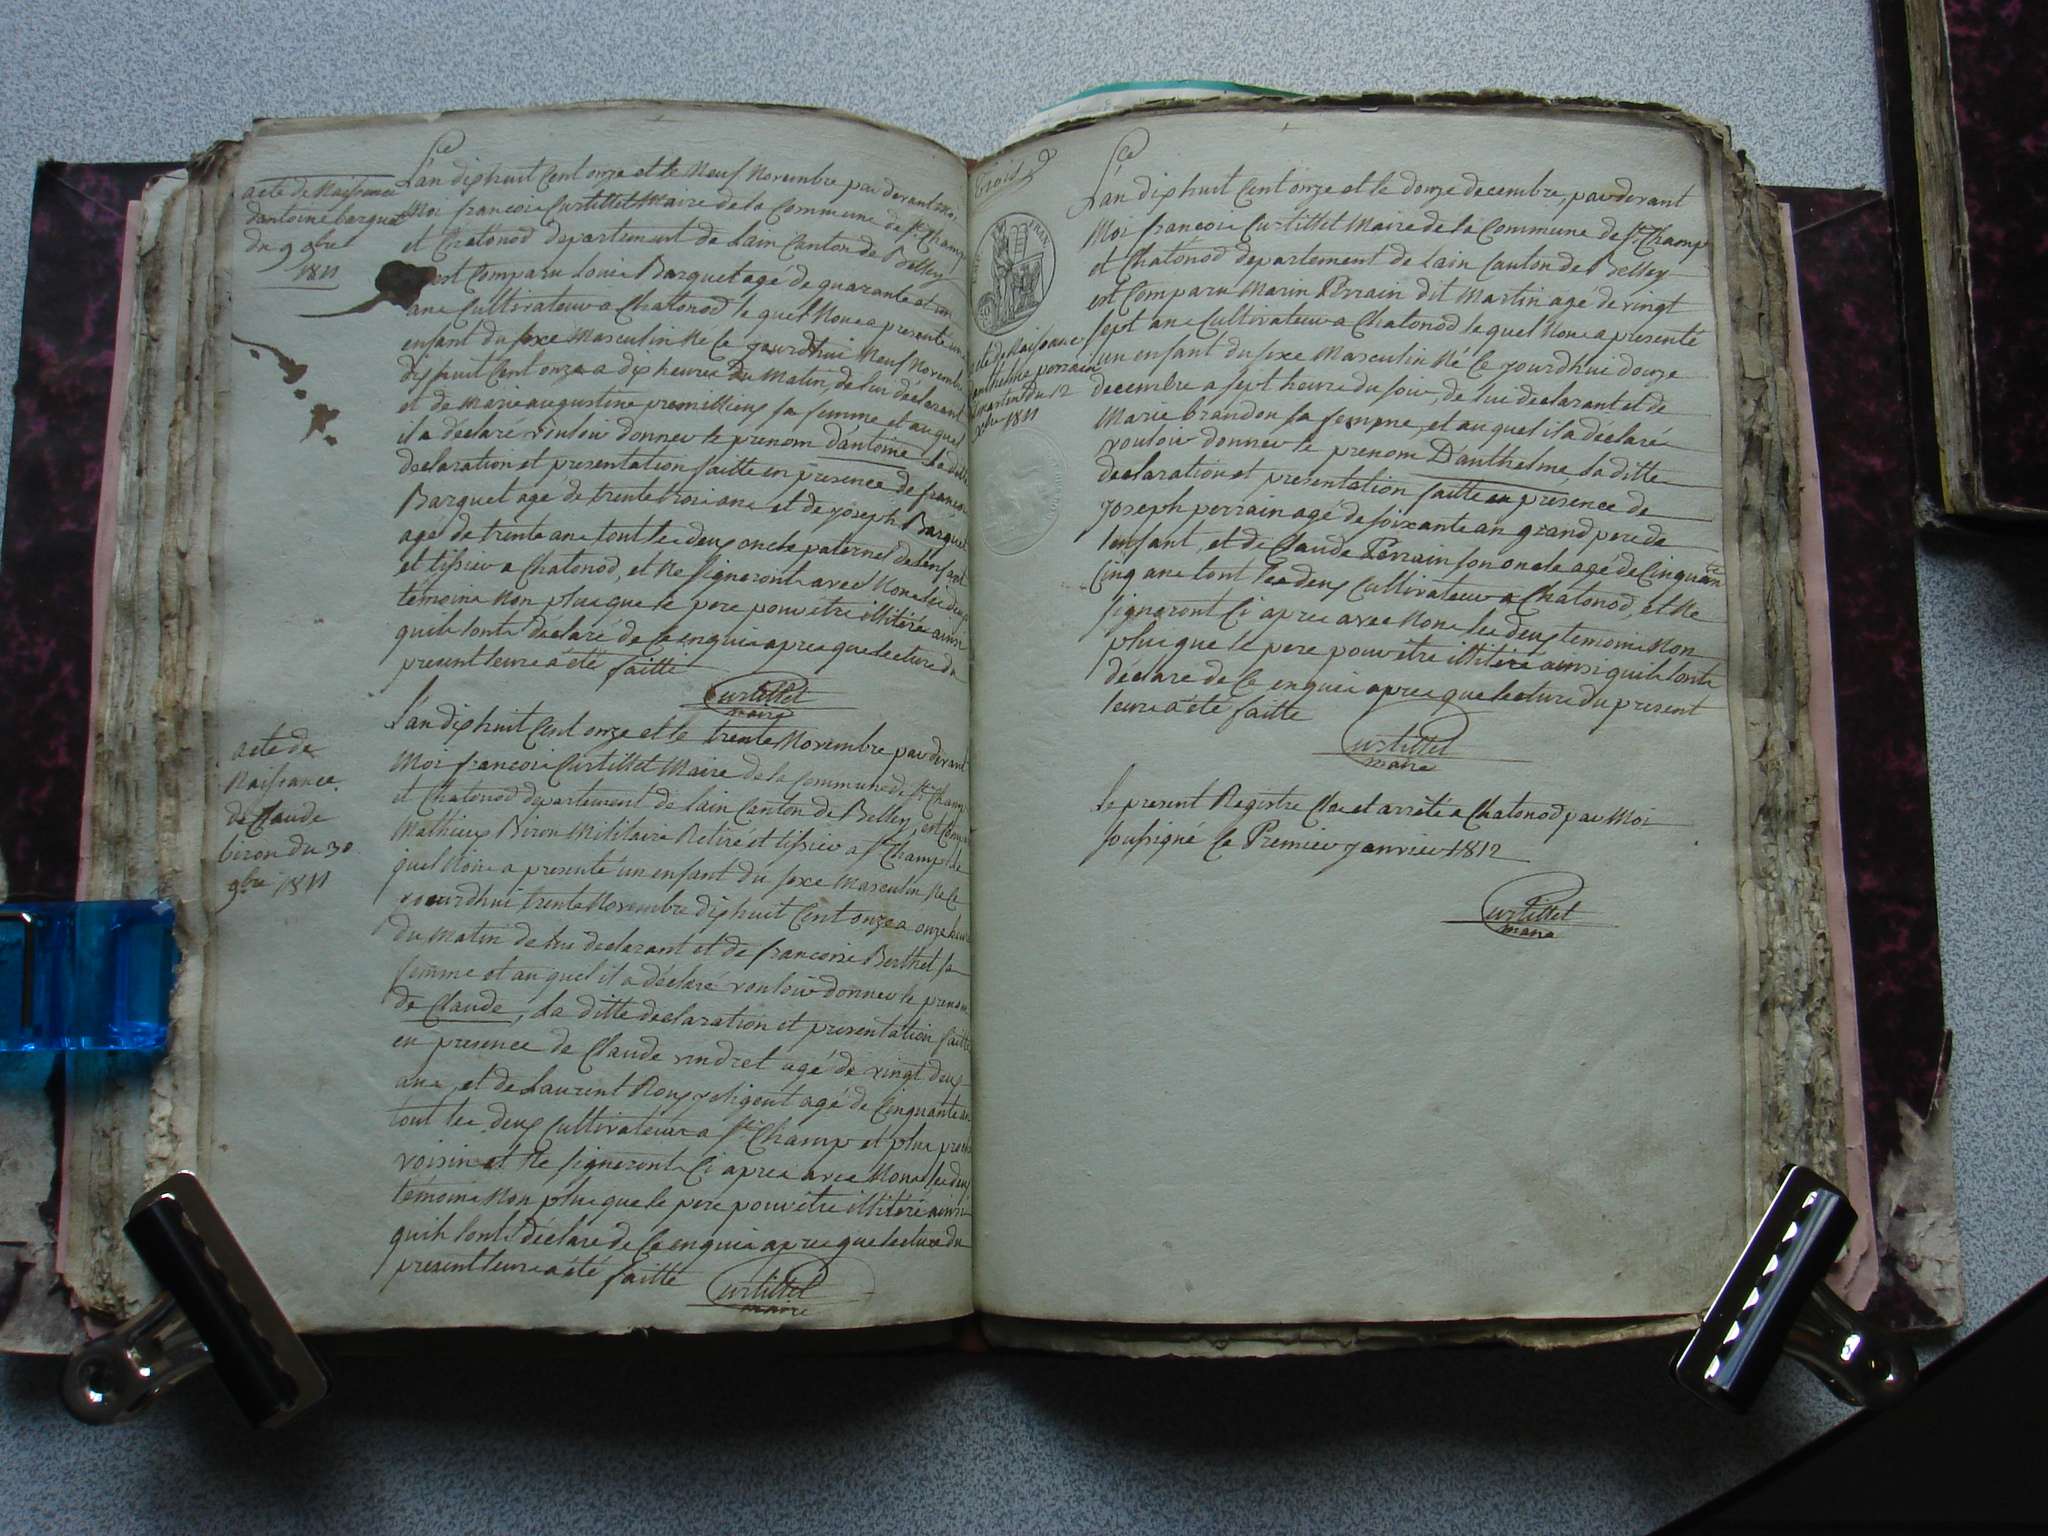 acte de Naissance
dantoine barquet
du 9 9bre
1811
L'an dix huit Cent onze et le Neuf Novembre par devant
Moi francois Curtillet Maire de la Commune de St Champ
et Chatonod departement de lain Canton de Belley
est Comparu Louis Barquet agé de quarante et un
ans Cultivateur a Chatonod le quel Nous a presenté un
enfant du sexe Masculin Né Ce jourdhui Neuf Novembre
dix huit Cent onze a dix heures du Matin, de lui déclarant
et de Marie augustine premillieu sa femme et auquel
il a declaré vouloir donner le prenom dantoine la ditte
declaration et presentation faitte en presence de francois
Barquet agé de trente trois ans et de joseph Barquet
agé de trente ans tout les deux oncle paternel de lenfant
et tissier a Chatonod, et Ne signeront avec Nous les deux
témoins Non plus que le pere pour être illitéré ainsi
quils lonts déclaré de Ce enquis apres que lecture du
present leurs à été faitte
Curtillet
maire
acte de
Naissance
de Claude
biron du 30
9bre 1811
L'an dix huit Cent onze et le trente Novembre par devant
Moi francois Curtillet Maire de la Commune de St Champ
et Chatonod departement de lain Canton de Belley, est Comparu
Mathieu Biron Militaire Retiré et tissier a St Champ le
quel Nous a presenté un enfant du sexe Masculin Né Ce
jourdhui trente Novembre dix huit Cent onze a onze heures
du Matin de lui declarant et de francoise Berthet sa
femme et au quel il a déclaré vouloir donner le prenom
de Claude, la ditte declaration et presentation faitte
en presence de Claude vindret agé de vingt deux
ans, et de Laurent Roux agé de Cinquante ans
tout les deux Cultivateurs a St Champ et plus proche
voisin et Ne signeronts Ci apres avec Nous les deux
témoins Non plus que le pere pour être illitéré ainsi
quils lonts déclaré de Ce enquis apres que lecture du
present leurs à été faitte
Curtillet
maire
trois
FRAN
acte de Naissance
danthelme perrain
dit martin du 12
Xbre 1811
L'an dix huit Cent onze et le douze decembre, par devant
Moi francois Curtillet Maire de la Commune de St Champ
et Chatonod departement de lain Canton de Belley
est Comparu Marin Perrain dit Martin agé de vingt
sept ans Cultivateur a Chatonod le quel Nous a presenté
un enfant du sexe Masculin Né Ce jourdhui douze
decembre a sept heure du soir, de lui declarant et de
Marie brandon sa femme, et au quel il a déclaré
vouloir donner le prenom Danthelme, la ditte
declaration et presentation faitte en presence de
joseph perrain agé de soixante an grand pere de
lenfant, et de Claude Perrain son oncle agé de Cinquante
Cinq ans tout les deux Cultivateur a Chatonod, et Ne
signeront Ci apres avec Nous les deux temoins Non
plus que le pere pour être illitéré ainsi quils lonts
déclaré de Ce enquis apres que lecture du present
leurs à été faitte
Curtillet
maire
le present Registre Clos et arrêté a Chatonod par Moi
soussigné le Premier janvier 1812
Curtillet
maire